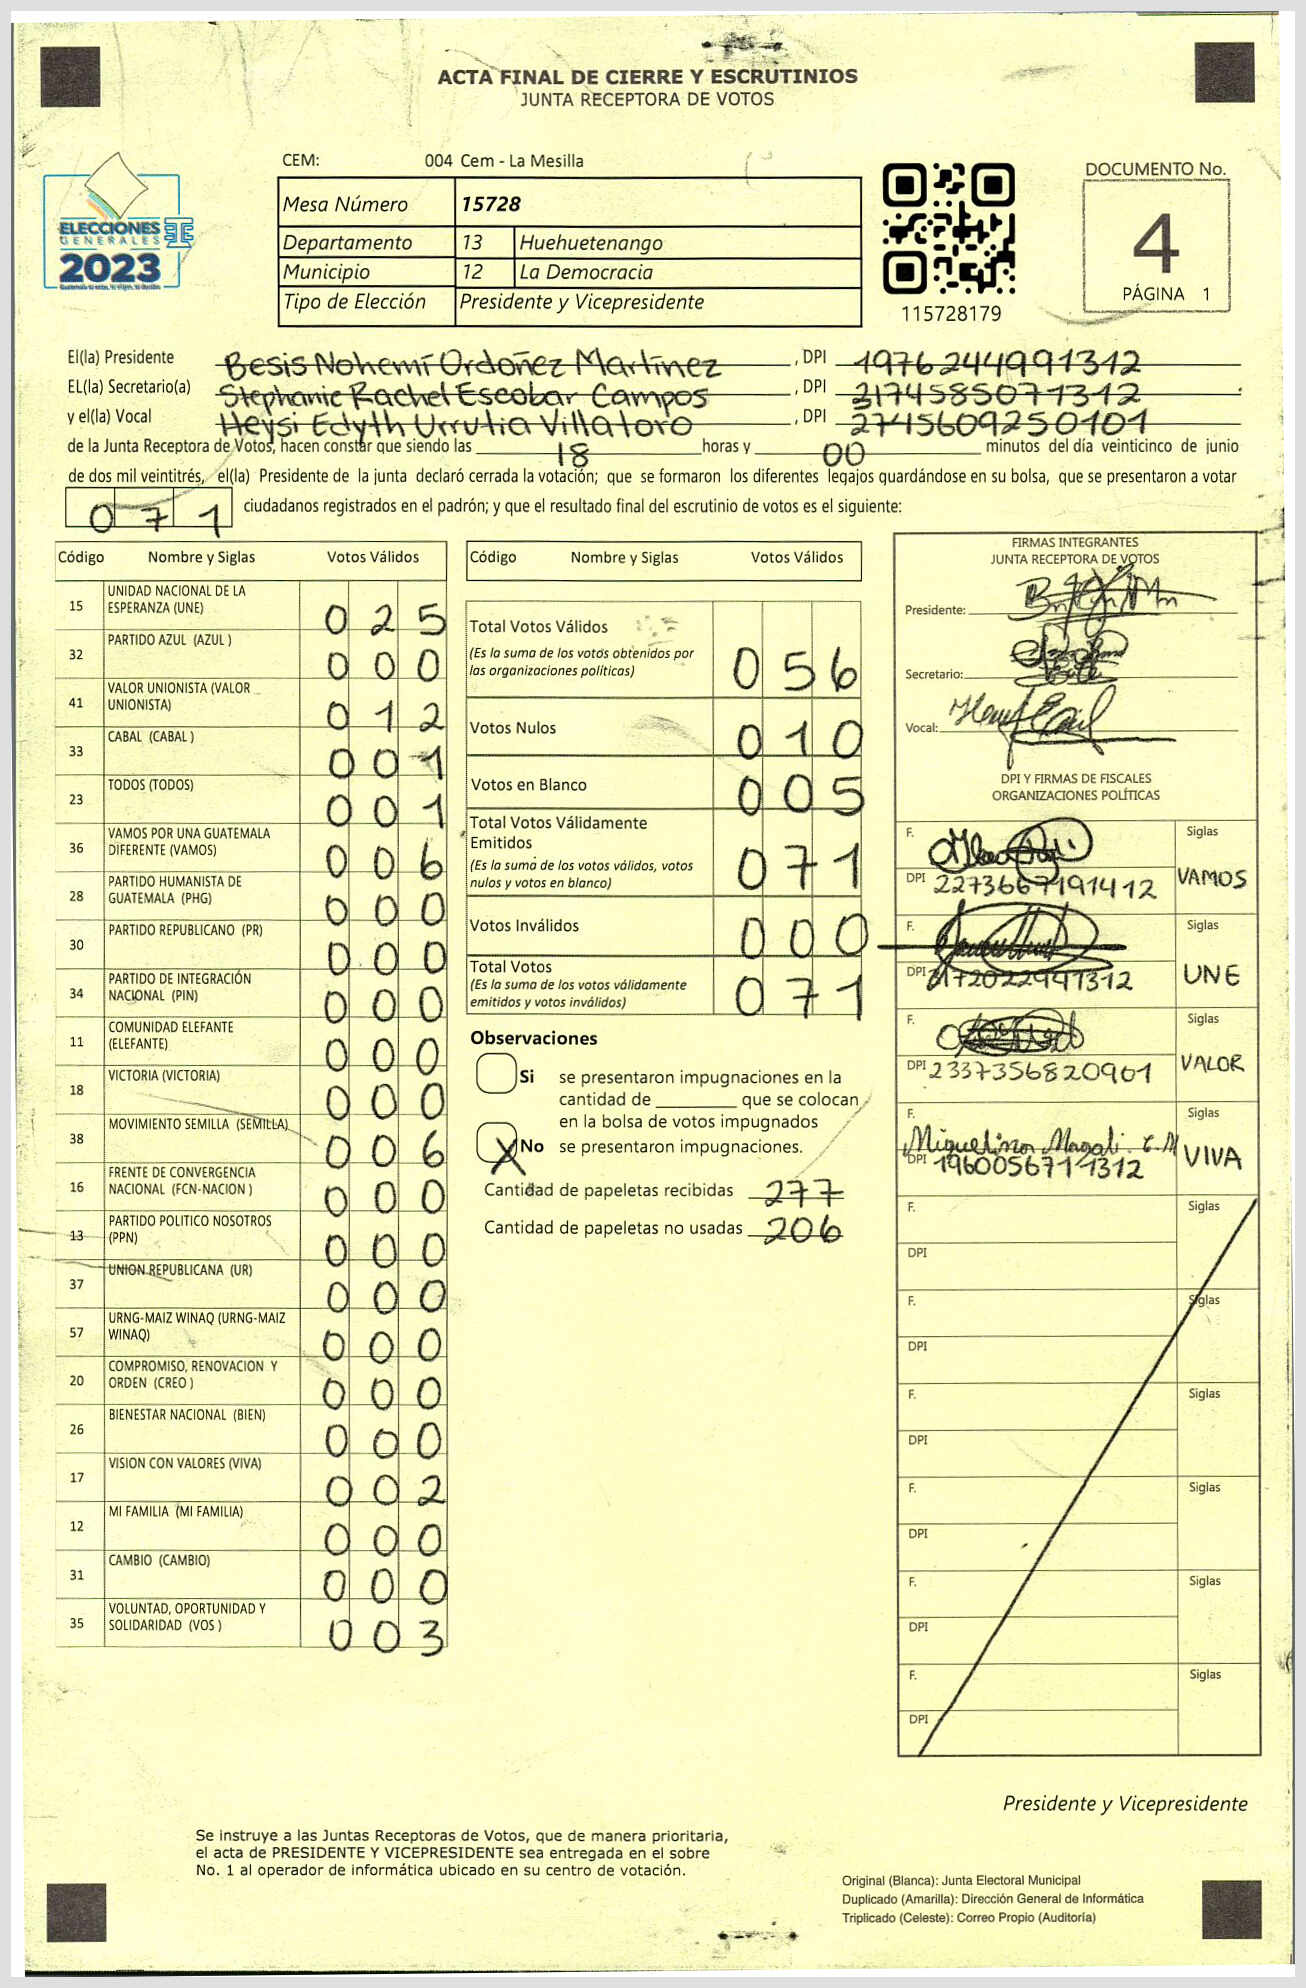 ACTA FINAL DE CIERRE Y ESCRUTINIOS
JUNTA RECEPTORA DE VOTOS
CEM: 004 Cem - La Mesilla
ELECCIONES
GENERALES
2023
Mesa Número 15728
Departamento 13 Huehuetenango
Municipio 12 La Democracia
Tipo de Elección Presidente y Vicepresidente
115728179
DOCUMENTO No.
4
PÁGINA 1
El(la) Presidente Besis Nohemí Ordoñez Martínez, DPI 1976244991312
EL(la) Secretario(a) Stephanie Rachel Escobar Campos, DPI 3174585071312
y el(la) Vocal Heysi Edyth Urrutia Villatoro, DPI 2745609250101
de la Junta Receptora de Votos, hacen constar que siendo las 18 horas y 00 minutos del día veinticinco de junio
de dos mil veintitrés, el(la) Presidente de la junta declaró cerrada la votación; que se formaron los diferentes legajos guardándose en su bolsa, que se presentaron a votar
071 ciudadanos registrados en el padrón; y que el resultado final del escrutinio de votos es el siguiente:
Código Nombre y Siglas Votos Válidos
15 UNIDAD NACIONAL DE LA ESPERANZA (UNE) 025
32 PARTIDO AZUL (AZUL ) 000
41 VALOR UNIONISTA (VALOR UNIONISTA) 012
33 CABAL (CABAL ) 001
23 TODOS (TODOS) 001
36 VAMOS POR UNA GUATEMALA DIFERENTE (VAMOS) 006
28 PARTIDO HUMANISTA DE GUATEMALA (PHG) 000
30 PARTIDO REPUBLICANO (PR) 000
34 PARTIDO DE INTEGRACIÓN NACIONAL (PIN) 000
11 COMUNIDAD ELEFANTE (ELEFANTE) 000
18 VICTORIA (VICTORIA) 000
38 MOVIMIENTO SEMILLA (SEMILLA) 006
16 FRENTE DE CONVERGENCIA NACIONAL (FCN-NACION ) 000
13 PARTIDO POLITICO NOSOTROS (PPN) 000
37 UNION REPUBLICANA (UR) 000
57 URNG-MAIZ WINAQ (URNG-MAIZ WINAQ) 000
20 COMPROMISO, RENOVACION Y ORDEN (CREO ) 000
26 BIENESTAR NACIONAL (BIEN) 000
17 VISION CON VALORES (VIVA) 002
12 MI FAMILIA (MI FAMILIA) 000
31 CAMBIO (CAMBIO) 000
35 VOLUNTAD, OPORTUNIDAD Y SOLIDARIDAD (VOS ) 003
Código Nombre y Siglas Votos Válidos
Total Votos Válidos 056
(Es la suma de los votos obtenidos por
las organizaciones políticas)
Votos Nulos 010
Votos en Blanco 005
Total Votos Válidamente
Emitidos 071
(Es la suma de los votos válidos, votos
nulos y votos en blanco)
Votos Inválidos 000
Total Votos 071
(Es la suma de los votos válidamente
emitidos y votos inválidos)
Observaciones
Si se presentaron impugnaciones en la
cantidad de ________ que se colocan
en la bolsa de votos impugnados
X No se presentaron impugnaciones.
Cantidad de papeletas recibidas 277
Cantidad de papeletas no usadas 206
FIRMAS INTEGRANTES
JUNTA RECEPTORA DE VOTOS
Presidente:
Secretario:
Vocal:
DPI Y FIRMAS DE FISCALES
ORGANIZACIONES POLÍTICAS
F. Siglas
DPI 2273667191412 VAMOS
F. Siglas
DPI 3172022991312 UNE
F. Siglas
DPI 2337356820901 VALOR
F. Miguelina Magali Siglas
DPI 1960056711312 VIVA
F. Siglas
DPI
F. Siglas
DPI
F. Siglas
DPI
F. Siglas
DPI
F. Siglas
DPI
F. Siglas
DPI
Presidente y Vicepresidente
Se instruye a las Juntas Receptoras de Votos, que de manera prioritaria,
el acta de PRESIDENTE Y VICEPRESIDENTE sea entregada en el sobre
No. 1 al operador de informática ubicado en su centro de votación.
Original (Blanca): Junta Electoral Municipal
Duplicado (Amarilla): Dirección General de Informática
Triplicado (Celeste): Correo Propio (Auditoría)